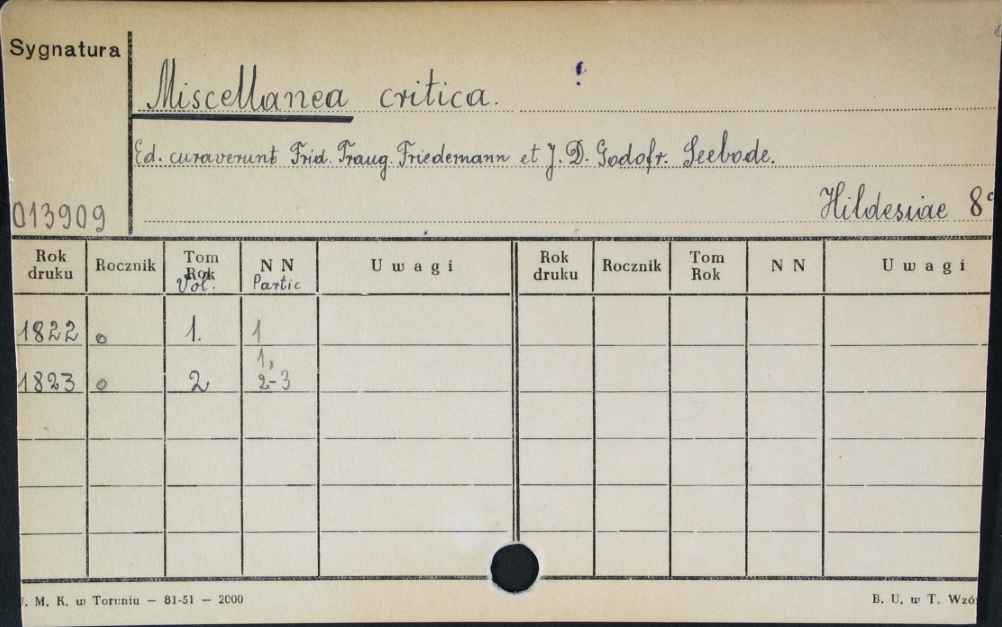 Sygnatura
Miscellanea critica.
Ed. curaverunt Frid. Traug. Friedemann et J. D. Godofr. Seebode.
013909
Hildesiae 8°
Rok druku Rocznik Tom Rok Vol. N N Partic Uwagi Rok druku Rocznik Tom Rok N N Uwagi
1822 o 1. 1
1,
1823 o 2 2-3
. M. K. w Toruniu — 81-51 — 2000
B. U. w T. Wzó